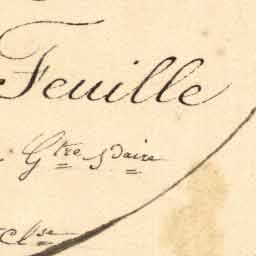 Feuille
Gtre Sdaire
Clse